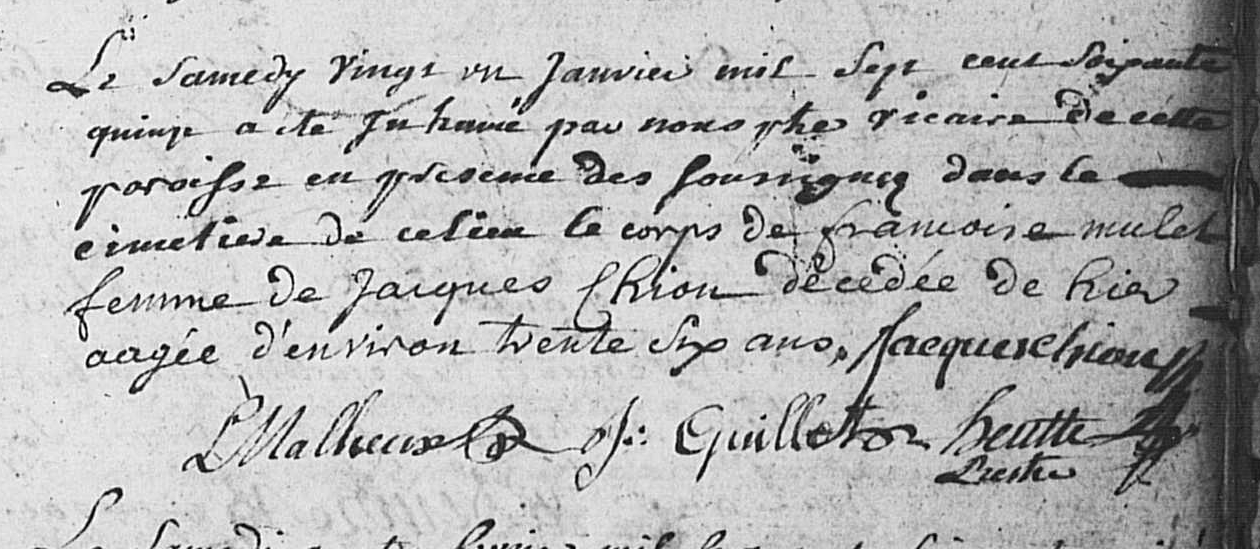 Le samedy vingt un janvier mil sept cent soixante
quinze a ete Inhumé par nous pbre vicaire de cette
paroisse en presence des soussignez dans le
cimetiere de ce lieu le corps de francoise mulet
femme de Jacques Chion décedée de hier
aagée d'environ trente six ans, Jacques chion
L Malheux J: Guillot heutte
Prestre
Le Samedi